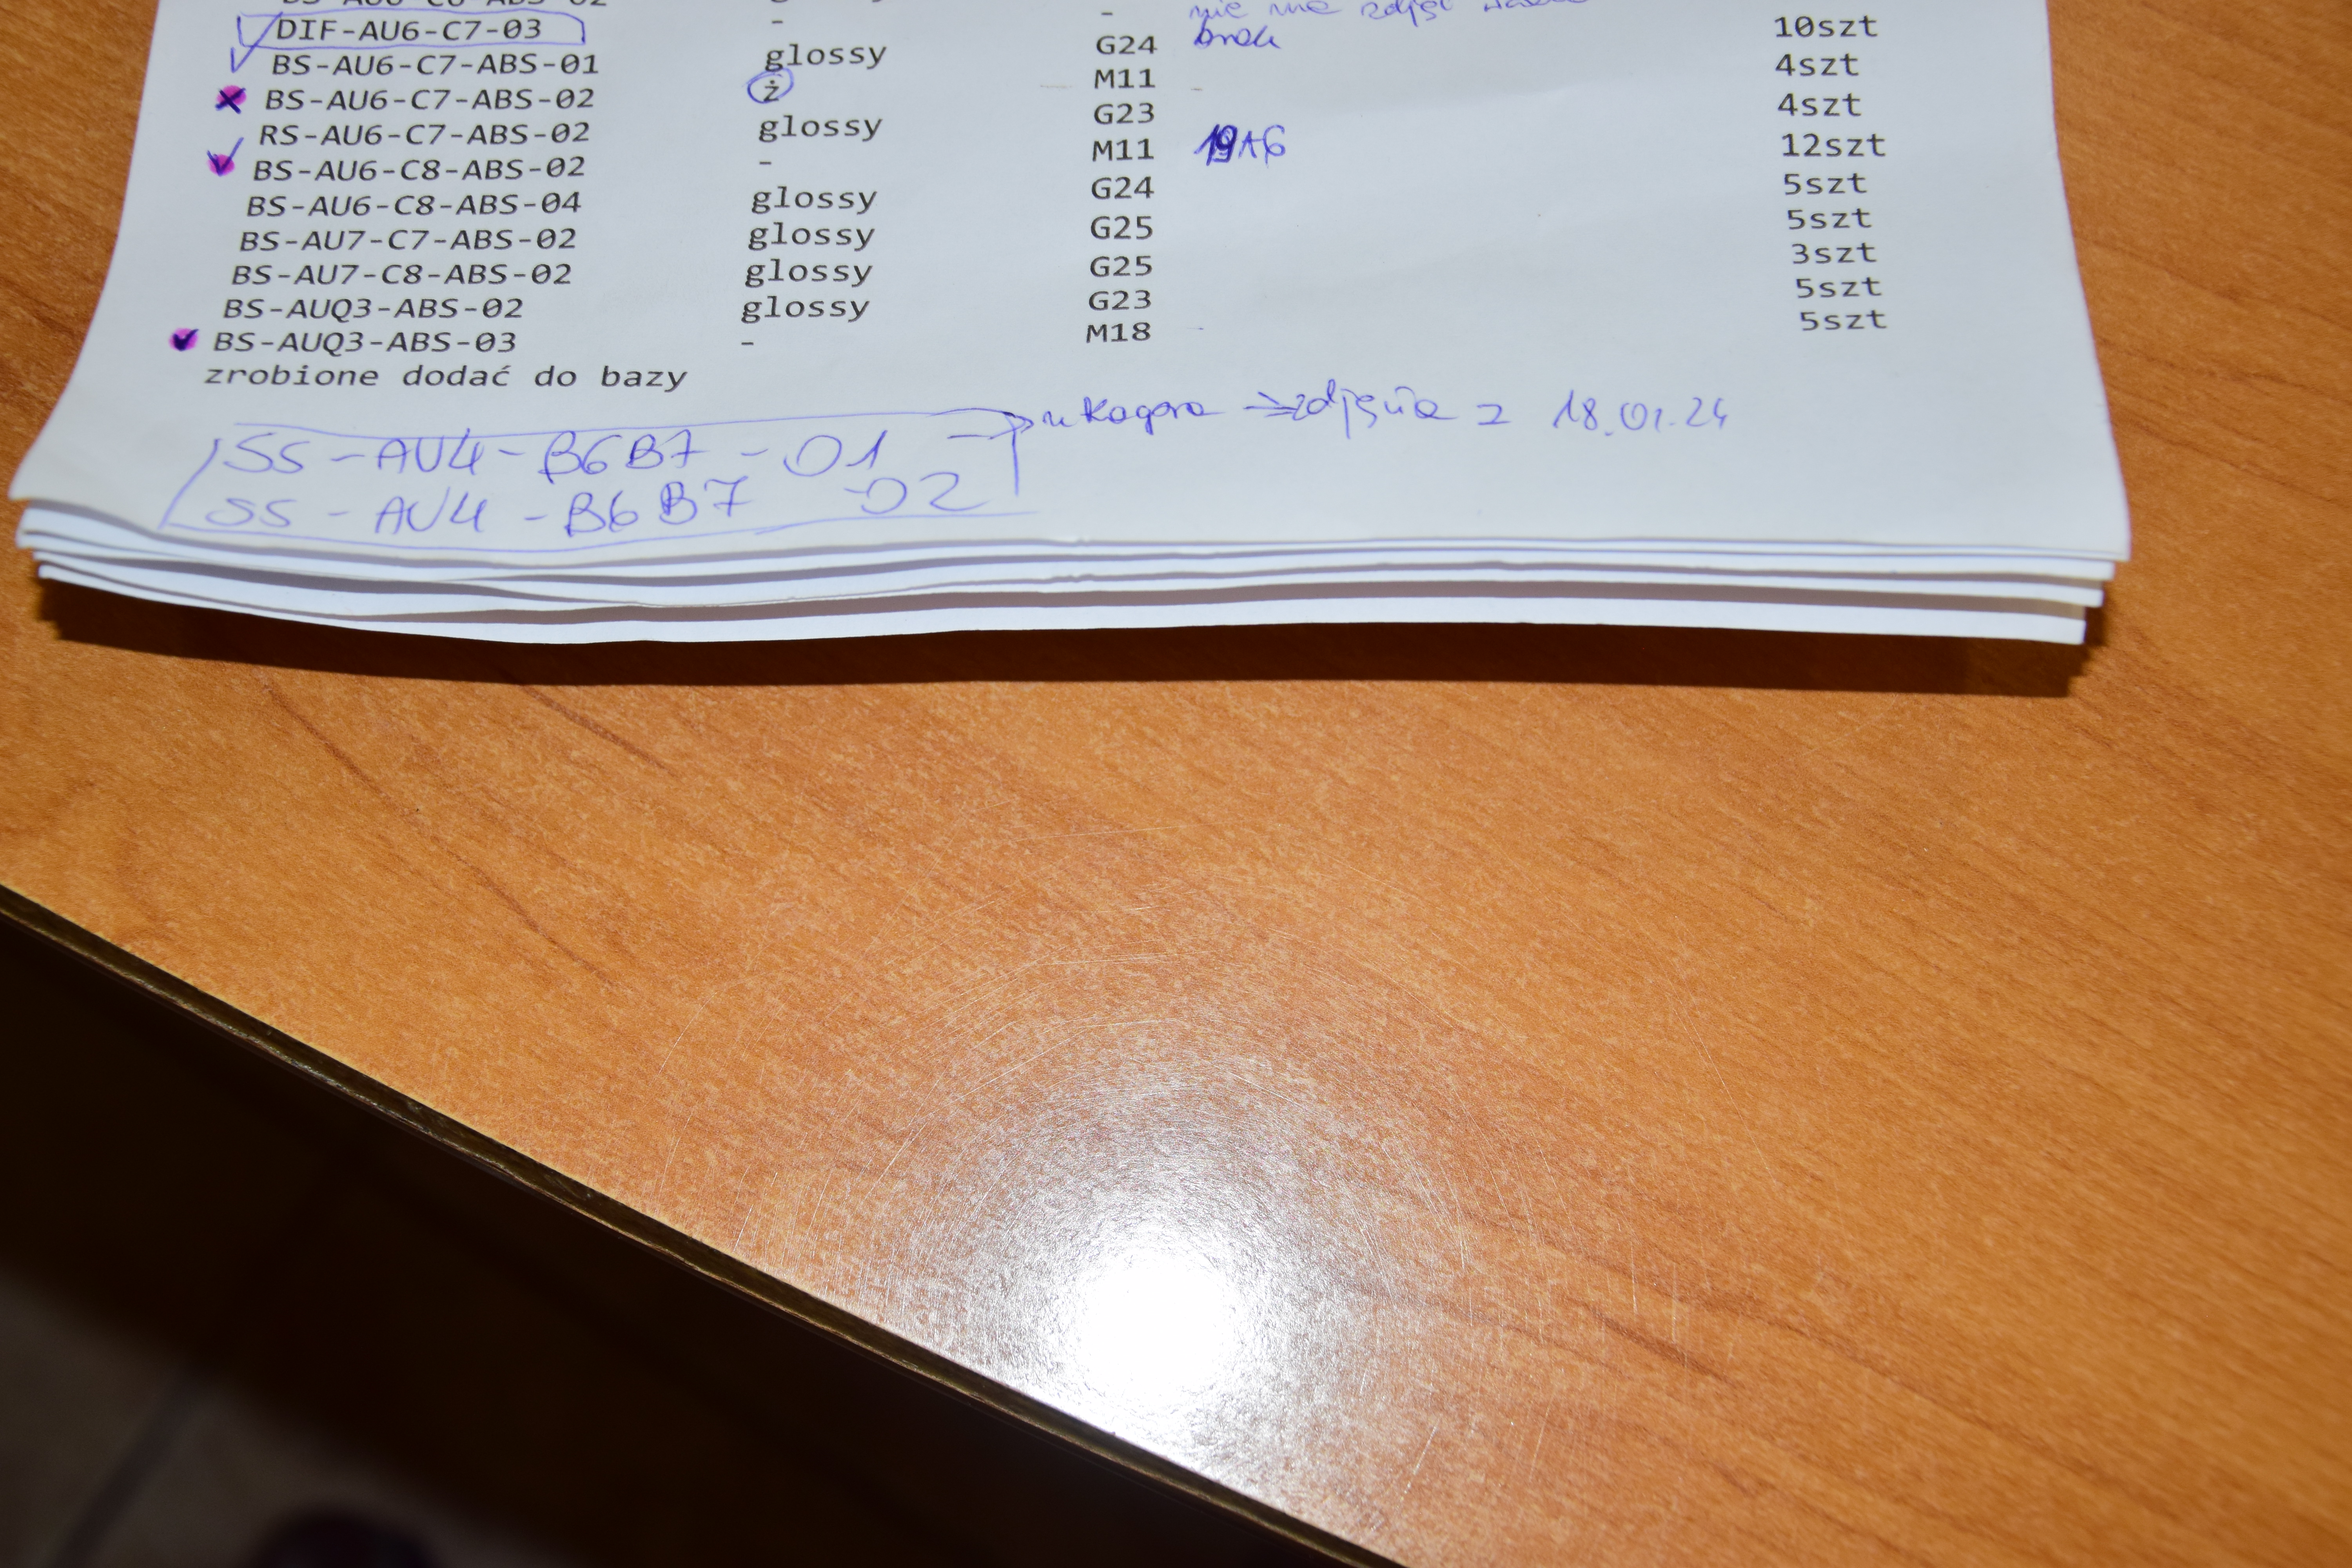 DIF-AU6-C7-03 - -
nie ma zdjęć
brak
BS-AU6-C7-ABS-01 glossy G24 10szt
BS-AU6-C7-ABS-02 ż M11 - 4szt
RS-AU6-C7-ABS-02 glossy G23 4szt
BS-AU6-C8-ABS-02 - M11 12szt
BS-AU6-C8-ABS-04 glossy G24 5szt
BS-AU7-C7-ABS-02 glossy G25 5szt
BS-AU7-C8-ABS-02 glossy G25 3szt
BS-AUQ3-ABS-02 glossy G23 5szt
BS-AUQ3-ABS-03 - M18 5szt
zrobione dodać do bazy
SS-AU4-B6B7-01 → u Kagera → zdjęcia z 18.01.24
SS-AU4-B6B7-02